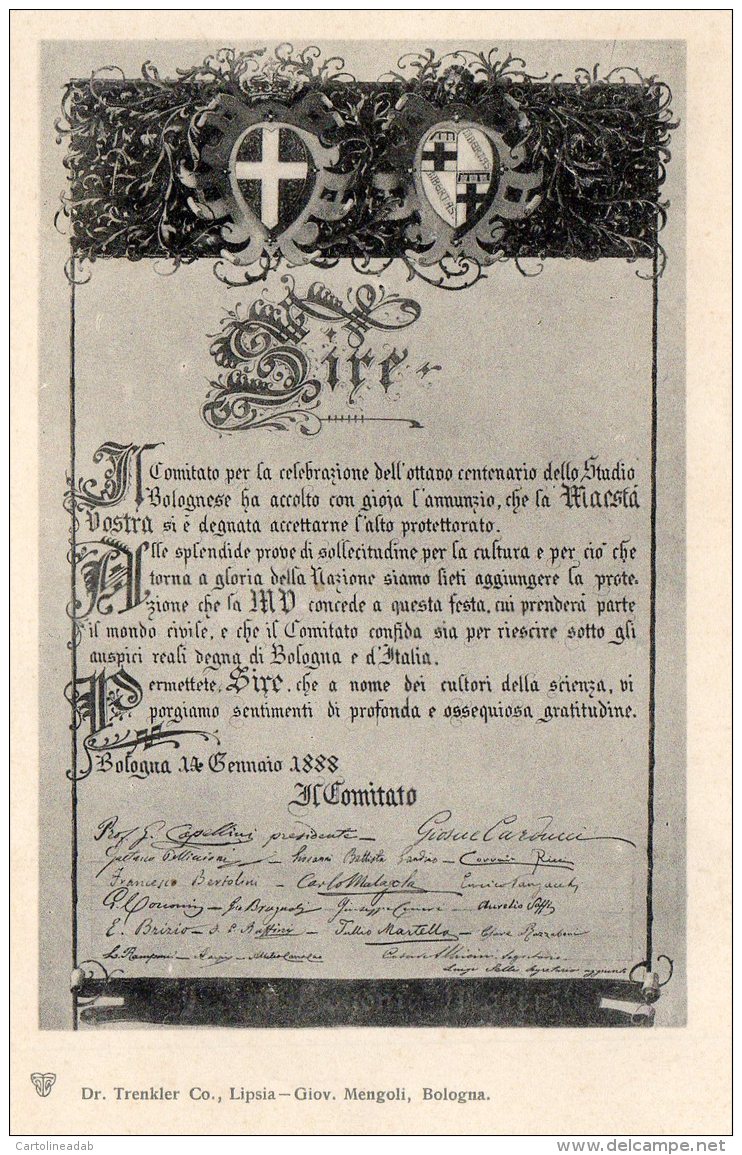 LIBERTAS
LIBERTAS
Sire
Il Comitato per la celebrazione dell'ottavo centenario dello Studio
Bolognese ha accolto con gioja l'annunzio, che la Maestá
Vostra si è degnata accettarne l'alto protettorato.
Alle splendide prove di sollecitudine per la cultura e per ciò che
torna a gloria della Nazione siamo lieti aggiungere la prote-
zione che la MV concede a questa festa, cui prenderà parte
il mondo civile, e che il Comitato confida sia per riescire sotto gli
auspici reali degna di Bologna e d'Italia.
Permettete, Sire, che a nome dei cultori della scienza, vi
porgiamo sentimenti di profonda e ossequiosa gratitudine.
Bologna 14 Gennaio 1888
Il Comitato
Prof G. Capellini presidente — Giosue Carducci
Gaetano Pelliccioni — Battista Gandino — Corrado Ricci
Francesco Bertolini — Carlo Malagola Enrico Panzacchi
Giuseppe — Aurelio Saffi
E. Brizio — Tullio Martello —
Cesare segretario
Luigi segretario aggiunto
Dr. Trenkler Co., Lipsia — Giov. Mengoli, Bologna.
Cartolineadab
www.delcampe.net